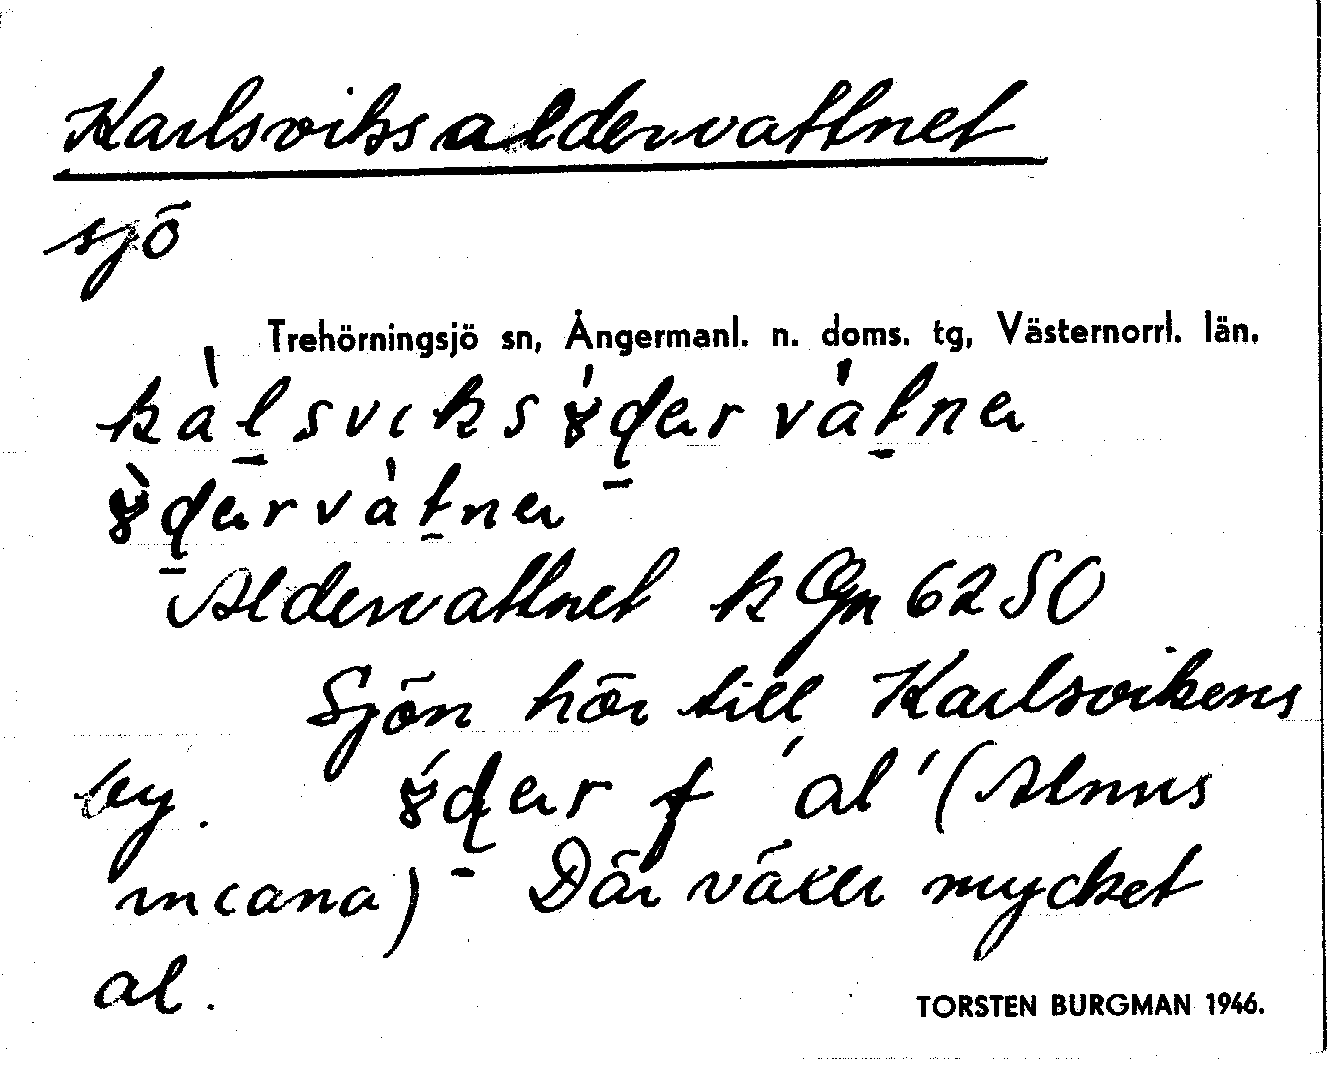 Karlsviksaldervattnet
sjö
Trehörningsjö sn, Ångermanl. n. doms. tg, Västernorrl. län.
kàlsviks
Aldervattnet k Gn 6250
Sjön hör till Karlsvikens
by. f 'al' (Alnus
incana) Där växer mycket
al.
TORSTEN BURGMAN 1946.